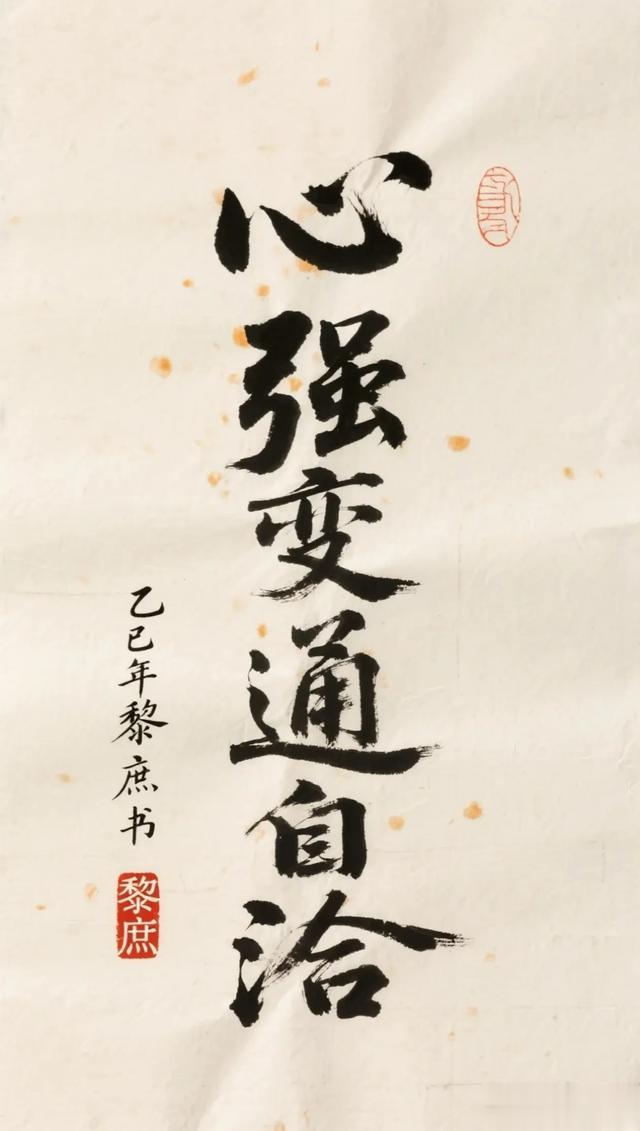 心强变通自洽
乙巳年黎庶书
黎庶